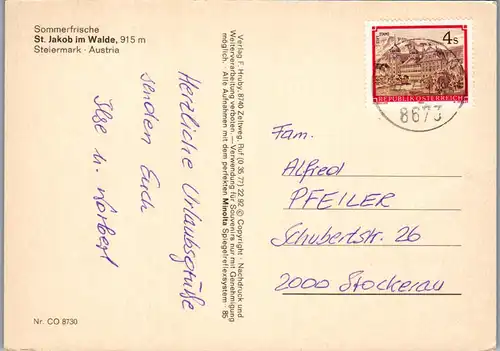 Sommerfrische
St. Jakob im Walde, 915 m
Steiermark · Austria
Herzliche Urlaubsgrüße
senden Euch
Ilse u. Norbert
Nr. CO 8730
Verlag F. Hruby, 8740 Zeltweg, Ruf (0 35 77) 22 92 © Copyright · Nachdruck und
Weiterverarbeitung verboten. — Verwendung für Souvenirs nur mit Genehmigung
möglich. · Alle Aufnahmen mit dem perfekten Minolta Spiegelreflexsystem · 85
4 S
REPUBLIK ÖSTERREICH
8673
Fam.
Alfied
PFEILER
Schubertstr. 26
2000 Stockerau